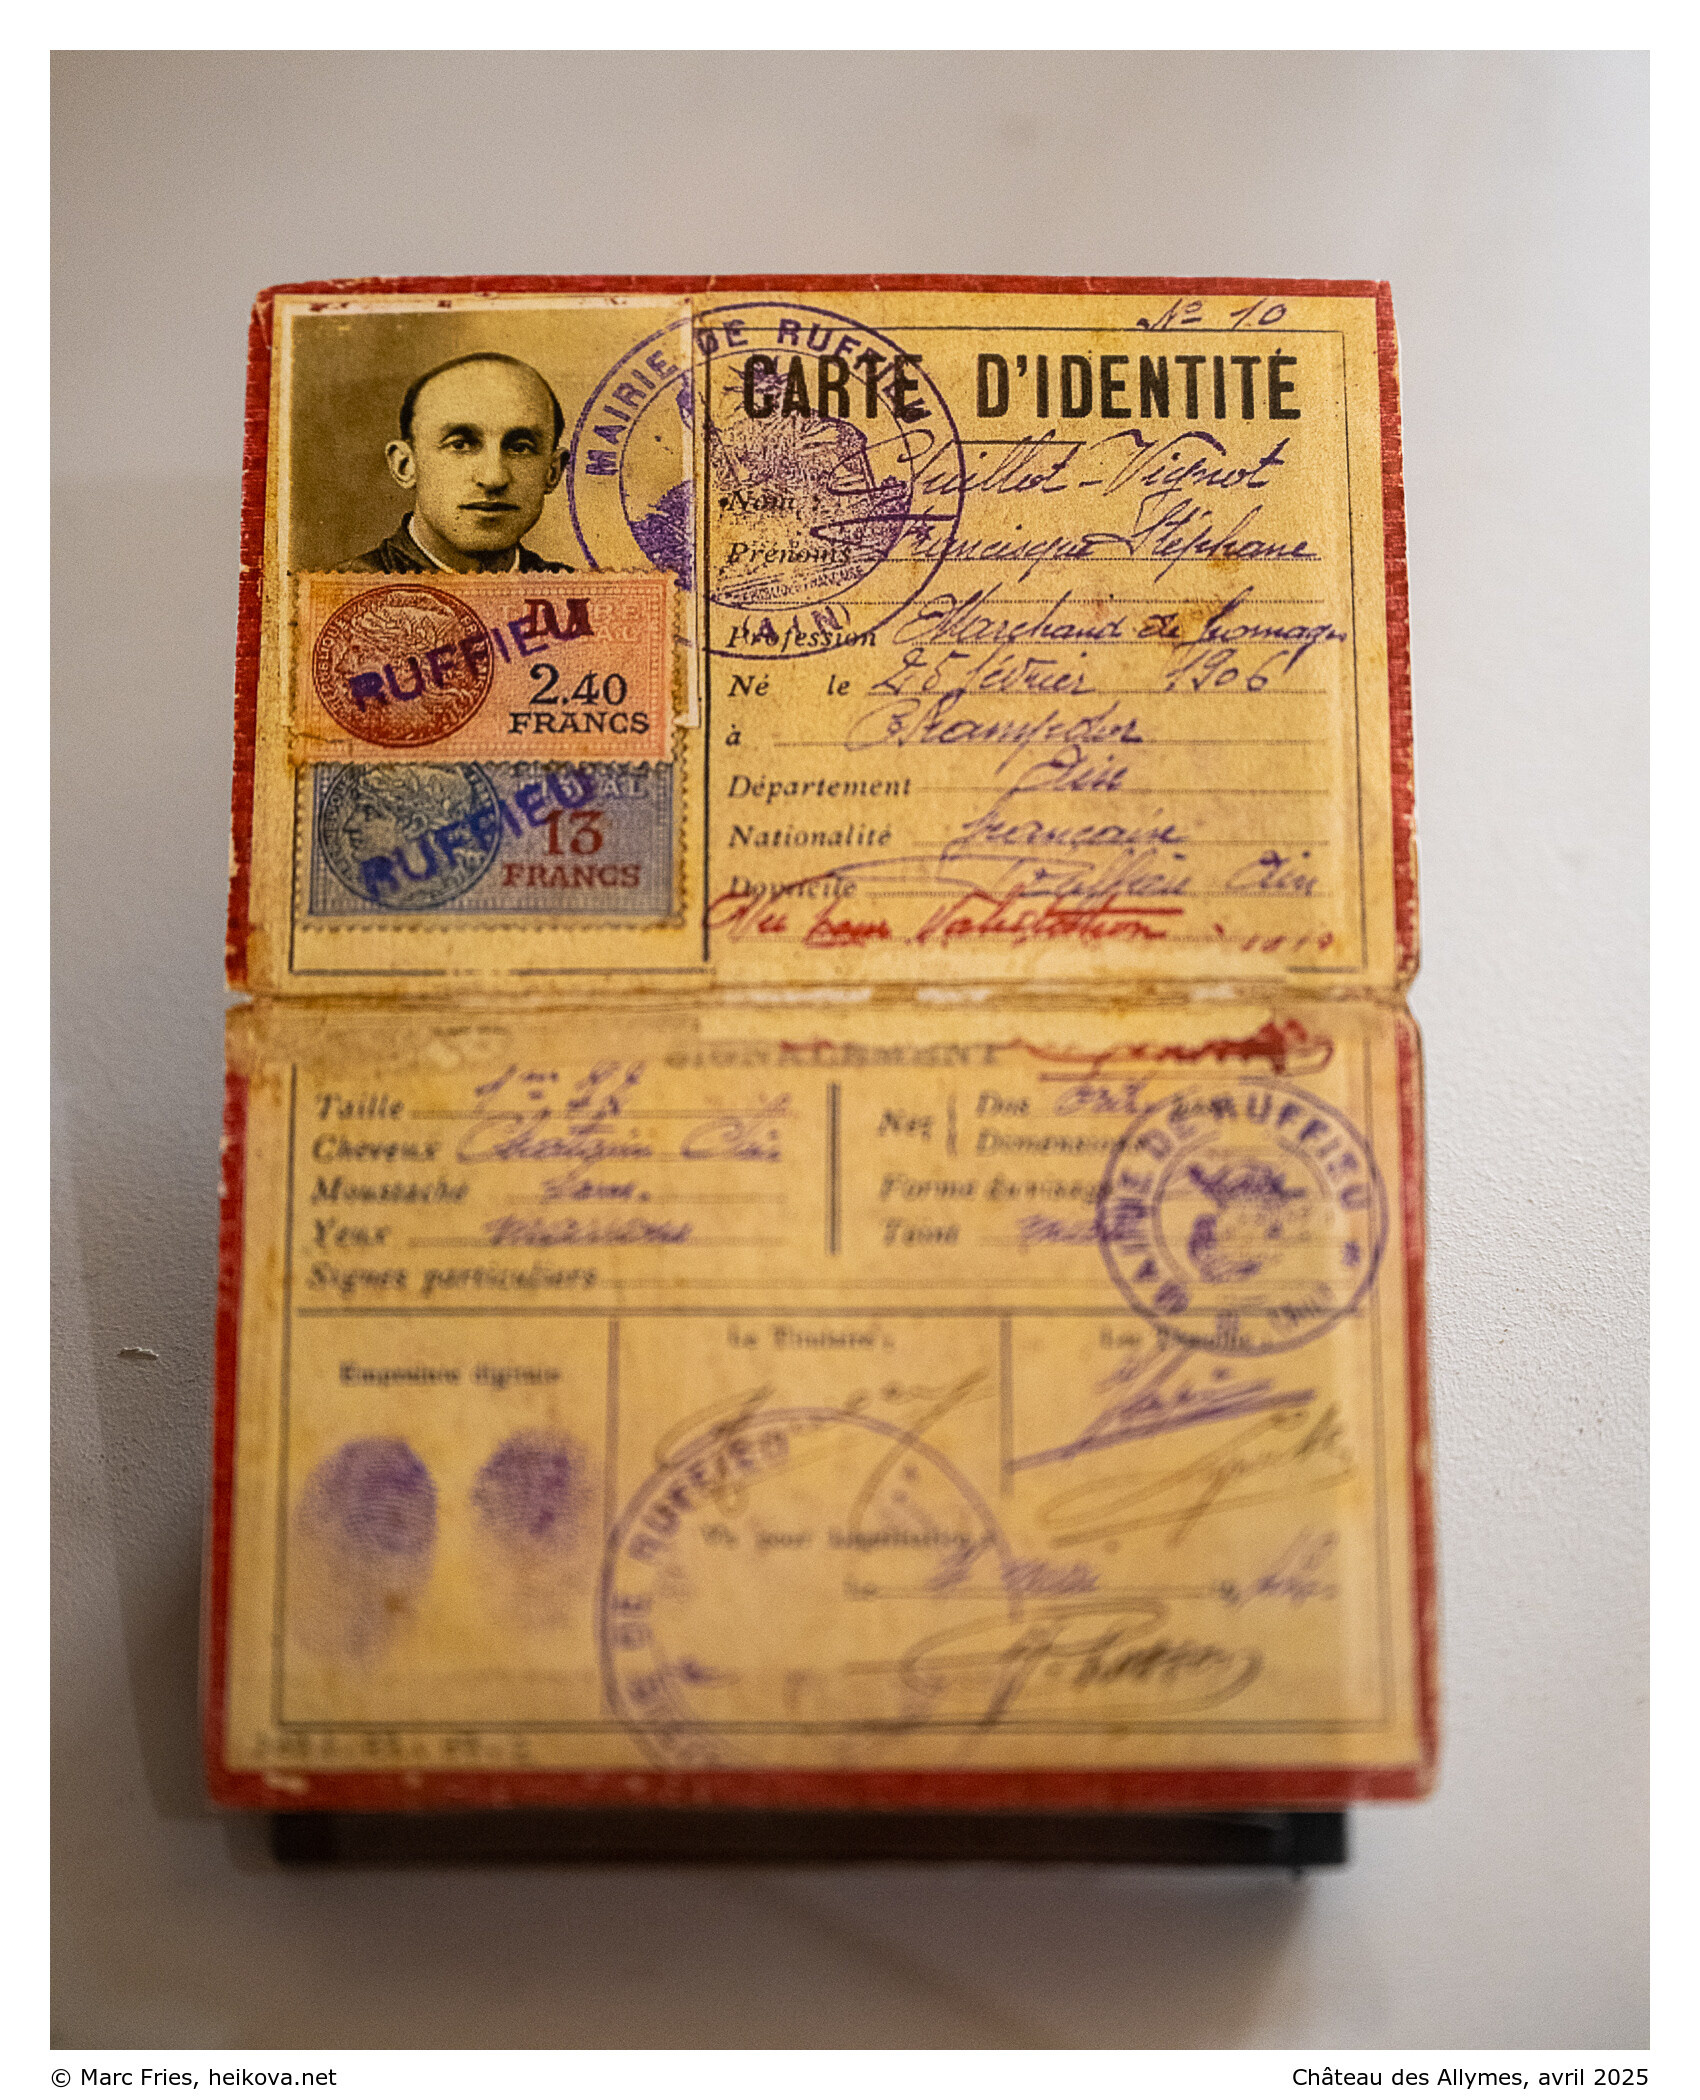 Nº 10
MAIRIE DE RUFFIEU
(AIN)
CARTE D'IDENTITÉ
Nom Guillot-Vignot
Prénoms Francisque Stéphane
Profession Marchand de fromages
Né le 25 février 1906
à Champdor
Département Ain
Nationalité française
Domicile Ruffieu Ain
Vu pour Validation
2.40
FRANCS
RUFFIEU
13
FRANCS
RUFFIEU
SIGNALEMENT
Taille 1m
Cheveux Chatain Clair
Moustache
Yeux marrons
Signes particuliers
Nez Dos
Dimension
Forme du visage
Teint
MAIRIE DE RUFFIEU
Empreinte digitale
Le Titulaire,
Les Témoins,
DE RUFFIEU
Vu pour légalisation,
Le
© Marc Fries, heikova.net
Château des Allymes, avril 2025